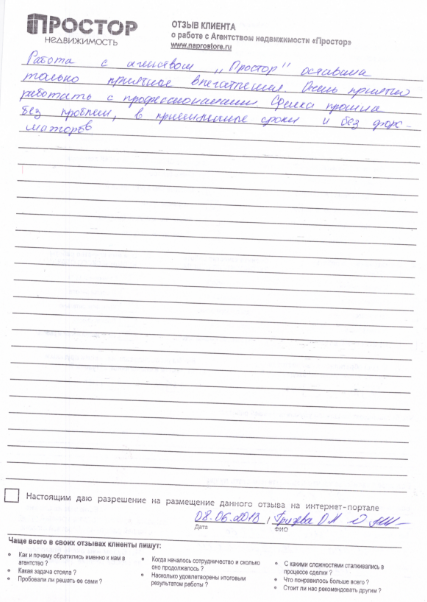 ПРОСТОР
НЕДВИЖИМОСТЬ
ОТЗЫВ КЛИЕНТА
о работе с Агентством недвижимости «Простор»
www.naprostore.ru
Работа с агенством „Простор" оставила
только приятное впечатления. Очень приятно
работать с профессионалами. Сделка прошла
без проблем, в приемлемые сроки и без форс-
мажоров
Настоящим даю разрешение на размещение данного отзыва на интернет-портале
Дата
ФИО
Чаще всего в своих отзывах клиенты пишут:
Как и почему обратились именно к нам в
агентство ?
Какая задача стояла ?
Пробовали ли решать ее сами ?
Когда началось сотрудничество и сколько
оно продолжалось ?
Насколько удовлетворены итоговым
результатом работы ?
С какими сложностями сталкивались в
процессе сделки ?
Что понравилось больше всего ?
Стоит ли нас рекомендовать другим ?